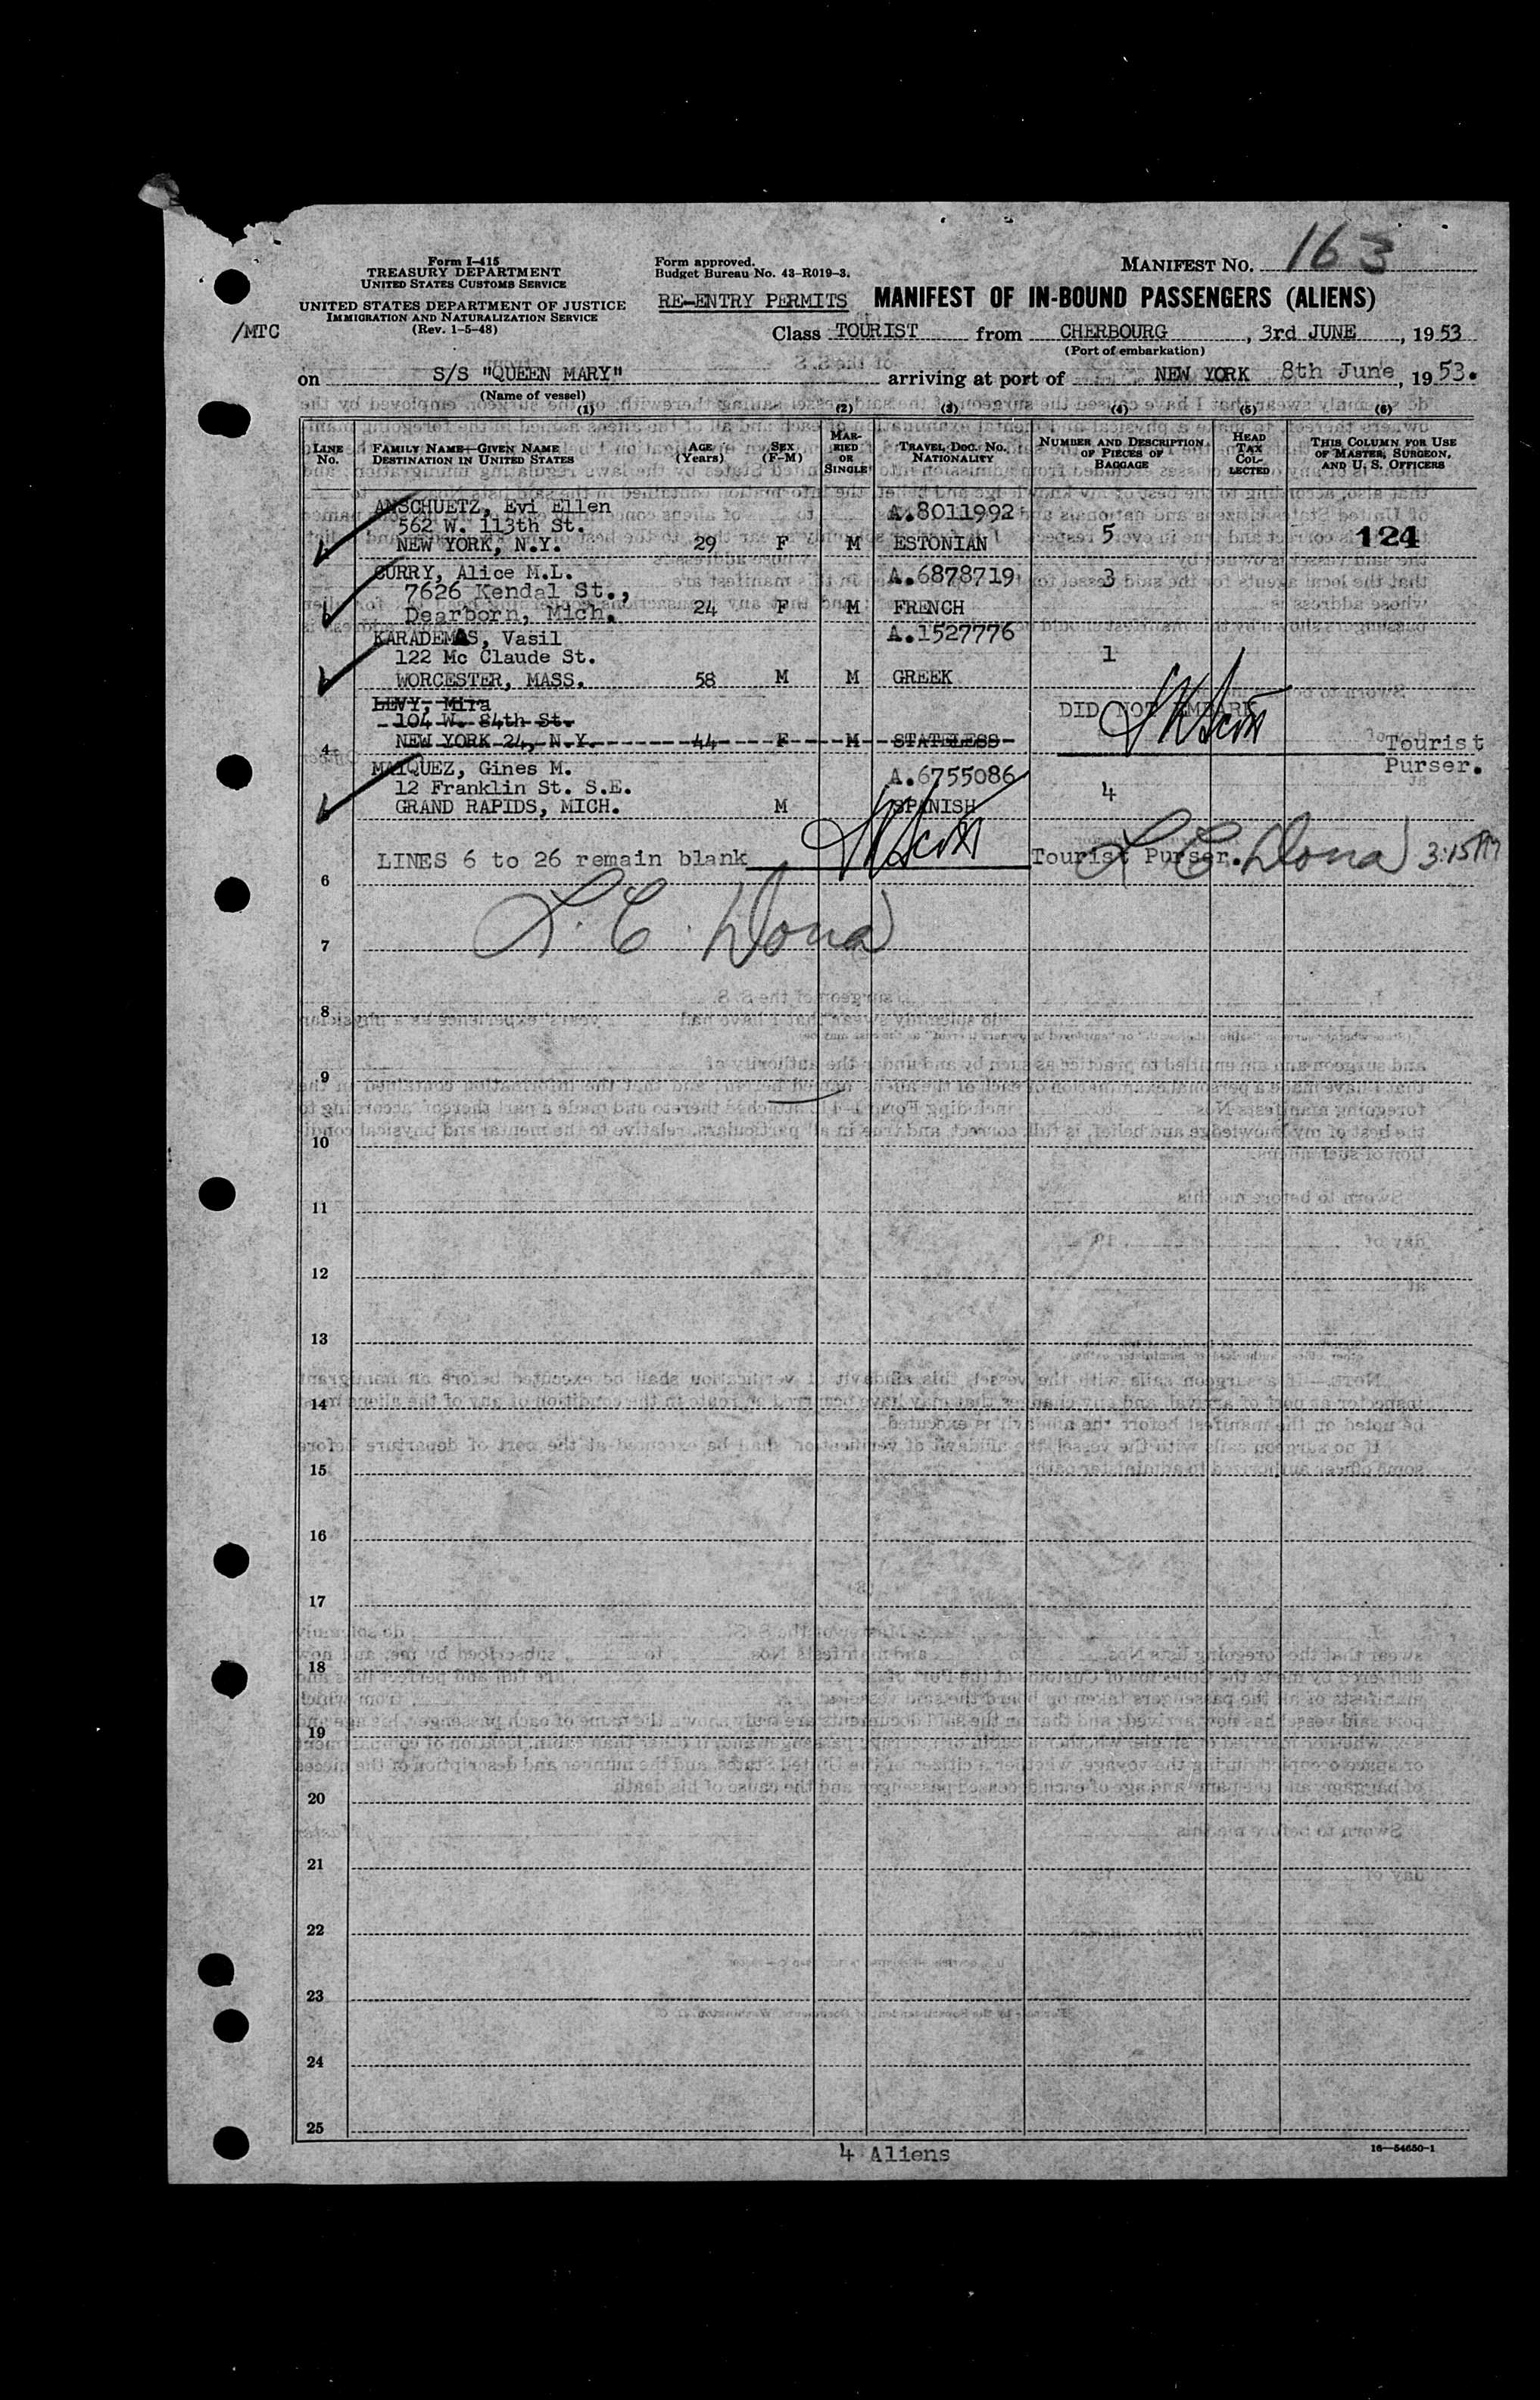 MANIFEST NO. 163
Form I-415
TREASURY DEPARTMENT
UNITED STATES CUSTOMS SERVICE
UNITED STATES DEPARTMENT OF JUSTICE
IMMIGRATION AND NATURALIZATION SERVICE
(Rev. 1-5-48)
Form approved.
Budget Bureau No. 43-R019-3.
/MTC
RE-ENTRY PERMITS MANIFEST OF IN-BOUND PASSENGERS (ALIENS)
Class TOURIST from CHERBOURG, 3rd JUNE, 1953
(Port of embarkation)
on S/S "QUEEN MARY" arriving at port of NEW YORK 8th June, 1953.
(Name of vessel)
(1) (2) (3) (4) (5) (6)
LINE No. FAMILY NAME—GIVEN NAME DESTINATION IN UNITED STATES AGE (Years) SEX (F-M) MARRIED OR SINGLE TRAVEL DOC. NO. NATIONALITY NUMBER AND DESCRIPTION OF PIECES OF BAGGAGE HEAD TAX COLLECTED THIS COLUMN FOR USE OF MASTER, SURGEON, AND U. S. OFFICERS
ANSCHUETZ, Evi Ellen A.8011992
562 W. 113th St.
NEW YORK, N.Y. 29 F M ESTONIAN 5 124
CURRY, Alice M.L. A.6878719 3
7626 Kendal St.,
Dearborn, Mich. 24 F M FRENCH
KARADEMAS, Vasil A.1527776
122 Mc Claude St. 1
WORCESTER, MASS. 58 M M GREEK
LEVY, Mira
104 W. 84th St. DID NOT EMBARK
4 NEW YORK 24, N.Y. 44 F M STATELESS Tourist
Purser.
MAIQUEZ, Gines M. A.6755086
12 Franklin St. S.E. 4
GRAND RAPIDS, MICH. M SPANISH
LINES 6 to 26 remain blank Tourist Purser. L C Dona 3:15PM
6
L. C. Dona
7
8
9
10
11
12
13
14
15
16
17
18
19
20
21
22
23
24
25
4 Aliens
16—54650-1